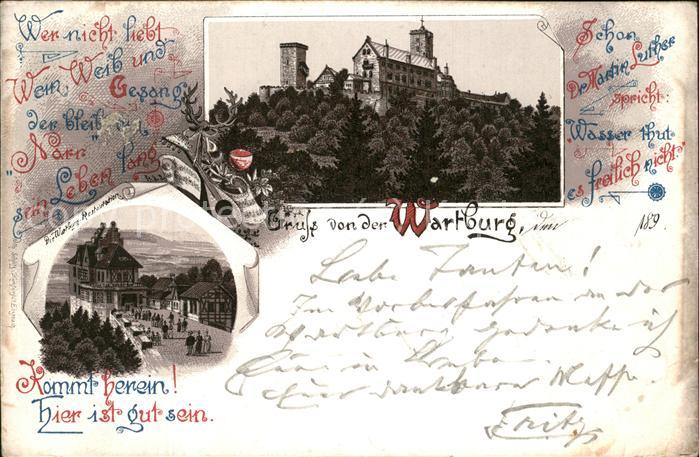 Wer nicht liebt
Wein, Weib und
Gesang,
der bleib ein
"Narr" sein lang
sein Leben
Schon
Dr. Martin Luther
spricht:
"Wasser thut
es freilich nicht."
Die Wartburg-Restauration
Gruss von der Wartburg, den 189 .
Liebe Tanten!
Im Vorbeifahren an der
Wartburg gedenke ich
Euer in Liebe.
Euer dankbarer Neffe
Fritz
Kommt herein!
Hier ist gut sein.